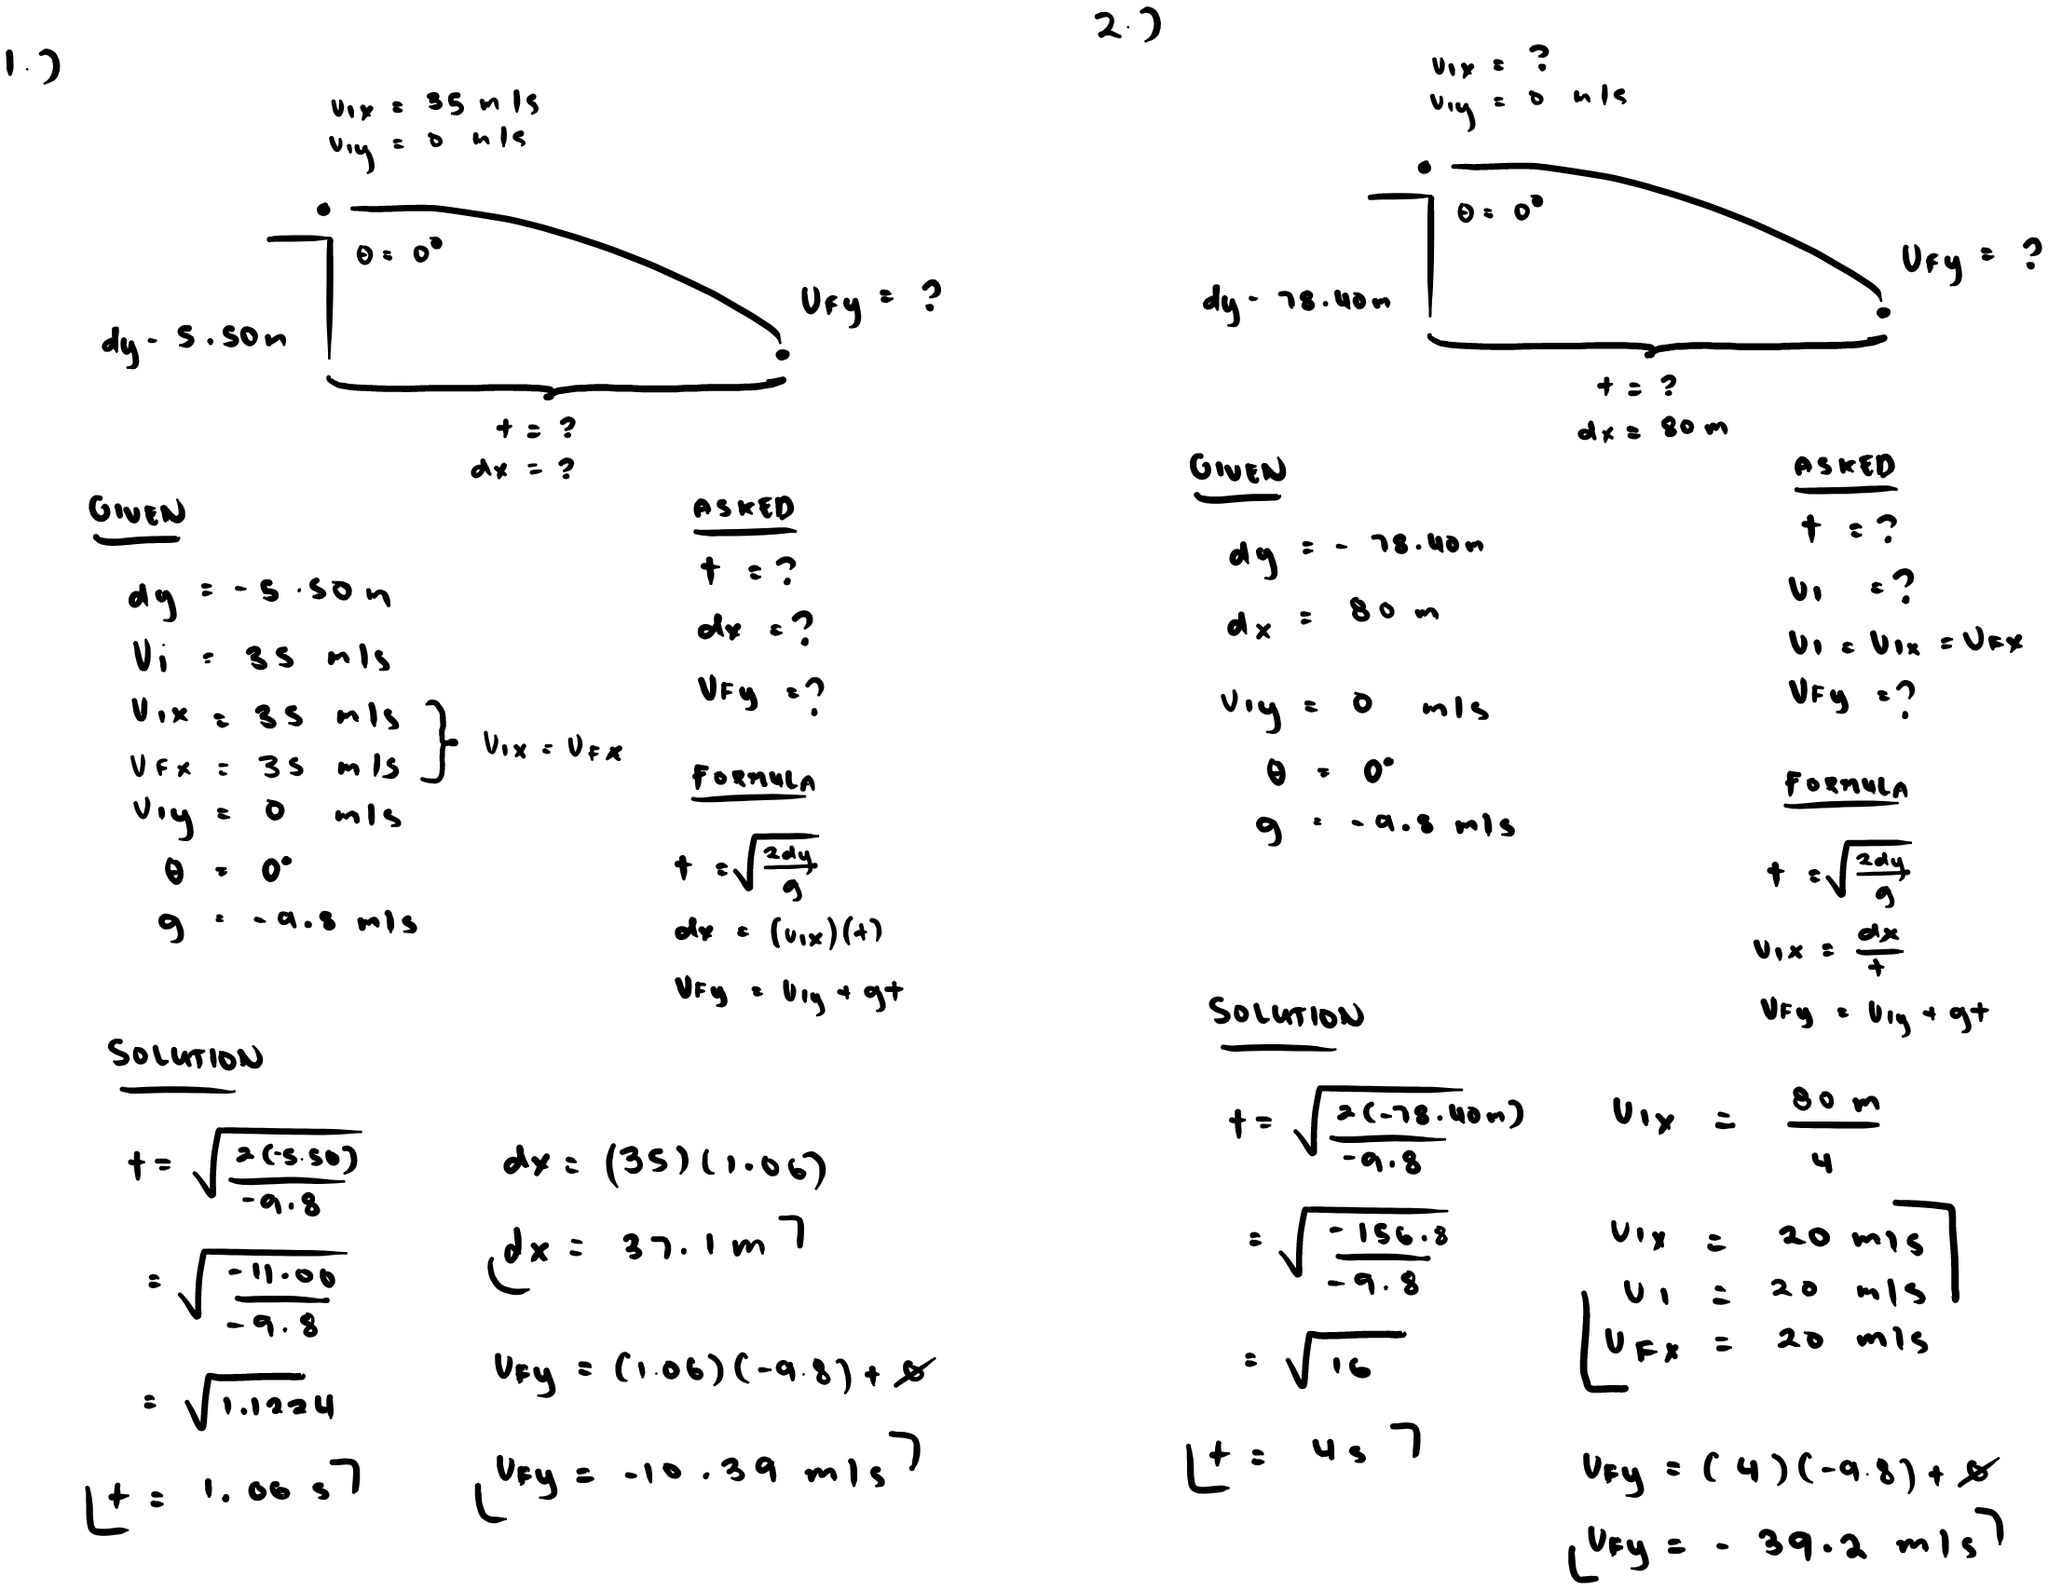 1.)
Vix = 35 m/s
Viy = 0 m/s
θ = 0°
dy - 5.50m
VFy = ?
t = ?
dx = ?
GIVEN
dy = -5.50 m
Vi = 35 m/s
Vix = 35 m/s
VFx = 35 m/s
Vix = VFx
Viy = 0 m/s
θ = 0°
g = -9.8 m/s
ASKED
t = ?
dx = ?
VFy = ?
FORMULA
t = √(2dy/g)
dx = (Vix)(t)
VFy = Viy + gt
SOLUTION
t = √(2(-5.50)/-9.8)
= √(-11.00/-9.8)
= √1.1224
t = 1.06 s
dx = (35)(1.06)
dx = 37.1 m
VFy = (1.06)(-9.8) + 0
VFy = -10.39 m/s
2.)
Vix = ?
Viy = 0 m/s
θ = 0°
dy - 78.40m
VFy = ?
t = ?
dx = 80 m
GIVEN
dy = - 78.40m
dx = 80 m
Viy = 0 m/s
θ = 0°
g = -9.8 m/s
ASKED
t = ?
Vi = ?
Vi = Vix = VFx
VFy = ?
FORMULA
t = √(2dy/g)
Vix = dx/t
VFy = Viy + gt
SOLUTION
t = √(2(-78.40m)/-9.8)
= √(-156.8/-9.8)
= √16
t = 4s
Vix = 80 m/4
Vix = 20 m/s
Vi = 20 m/s
VFx = 20 m/s
VFy = (4)(-9.8) + 0
VFy = - 39.2 m/s